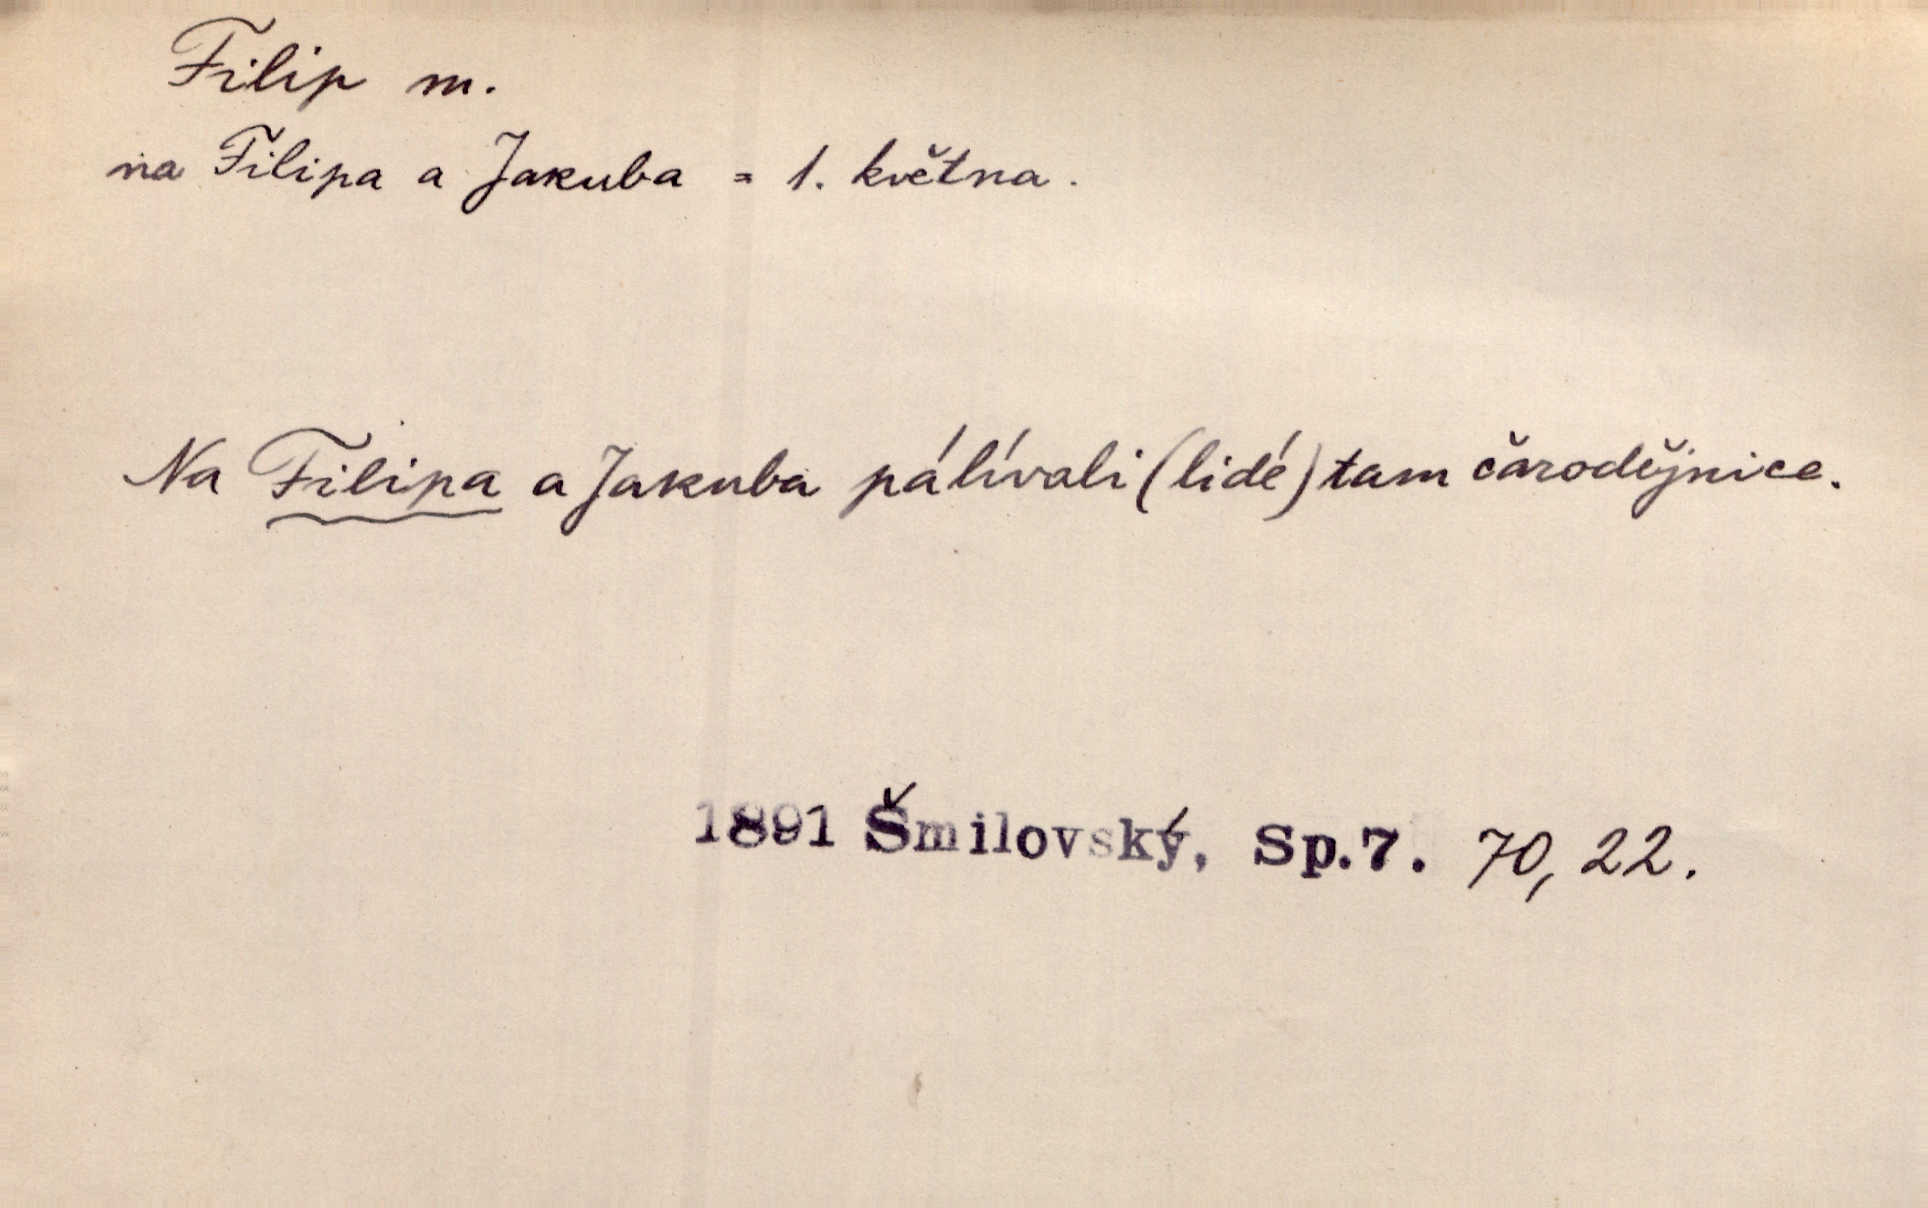 Filip m.
na Filipa a Jakuba = 1. května.
Na Filipa a Jakuba pálívali (lidé) tam čarodějnice.
1891 Šmilovský, Sp.7. 70, 22.